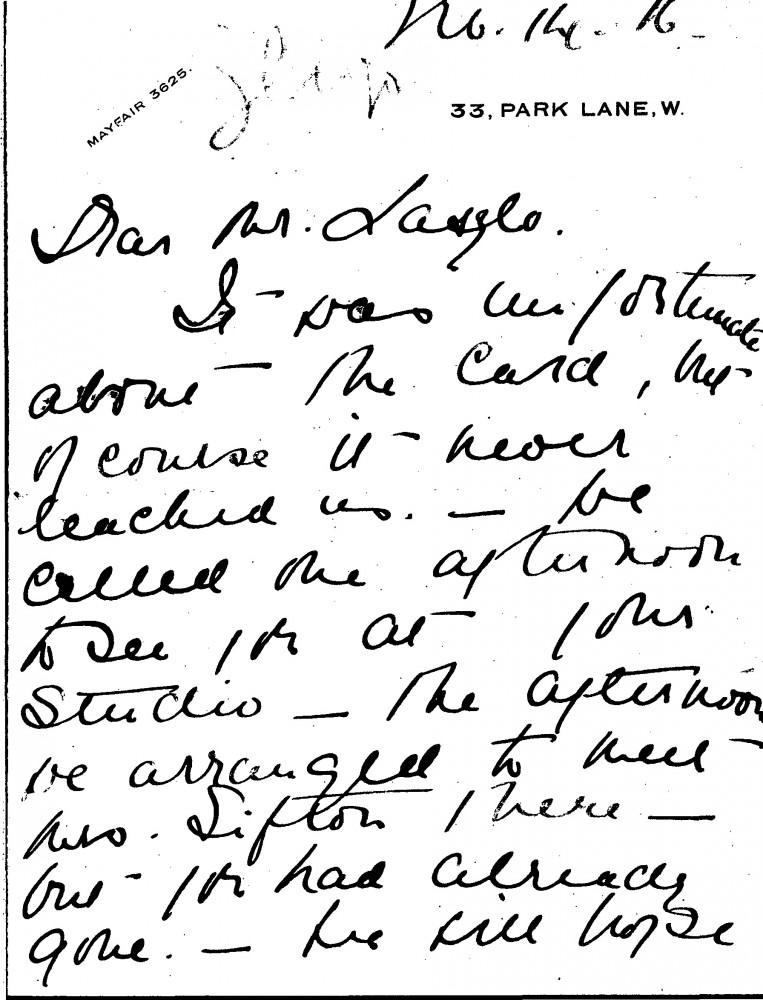 16.
MAYFAIR 3625.
33, PARK LANE, W.
Dear Mr. Laszlo.
It was unfortunate
about the card, but
of course it never
reached us. — We
called one afternoon
to see you at your
Studio — the afternoon
we arranged to meet
Mrs. Sifton there —
but you had already
gone. — We will hope